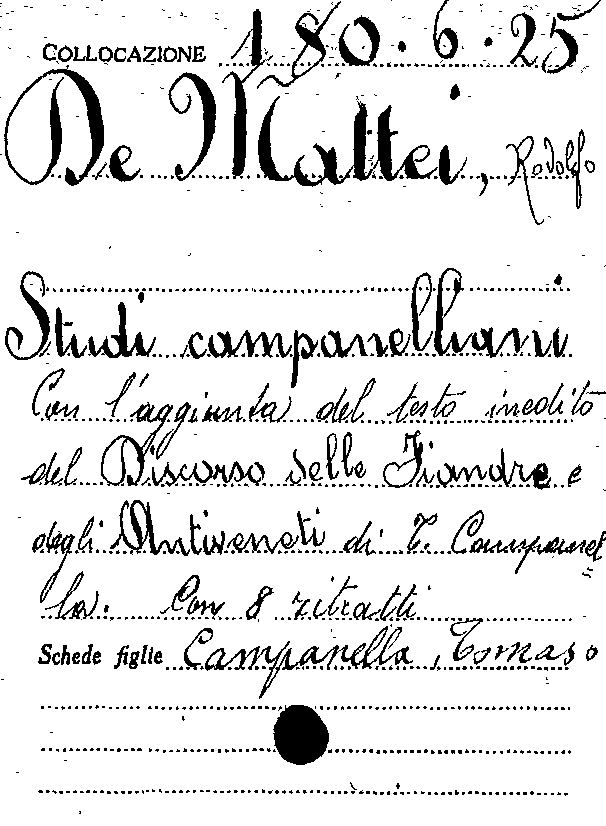 COLLOCAZIONE 180.6.25
De Mattei, Rodolfo
Studi campanelliani
Con l'aggiunta del testo inedito
del Discorso delle Fiandre e
degli Antiveneti di T. Campanel
la. Con 8 ritratti
Schede figlie Campanella, Tomaso